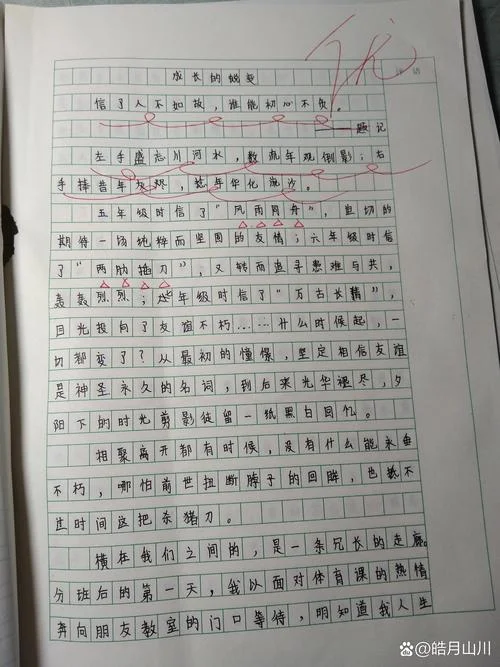 成长的蜕变
信了人不如故，谁能初心不负。
——题记
左手盛忘川河水，数流年观倒影；右
手捧昔年灰烬，忆年华化流沙。
五年级时信了“风雨同舟”，直切的
期待一场纯粹而坚固的友情；六年级时信
了“两肋插刀”，又转而追寻患难与共，
轰轰烈烈；七年级时信了“万古长青”，
目光投向了友谊不朽……什么时候起，一
切都变了？从最初的憧憬，坚定相信友谊
是神圣永久的名词，到后来光华褪尽，夕
阳下的时光剪影徒留一纸黑白回忆。
相聚离开都有时候，没有什么能永垂
不朽，哪怕前世扭断脖子的回眸，也抵不
过时间这把杀猪刀。
横在我们之间的，是一条冗长的走廊。
分班后的第一天，我以面对体育课的热情
奔向朋友教室的门口等待，明知道我人生
@皓月山川